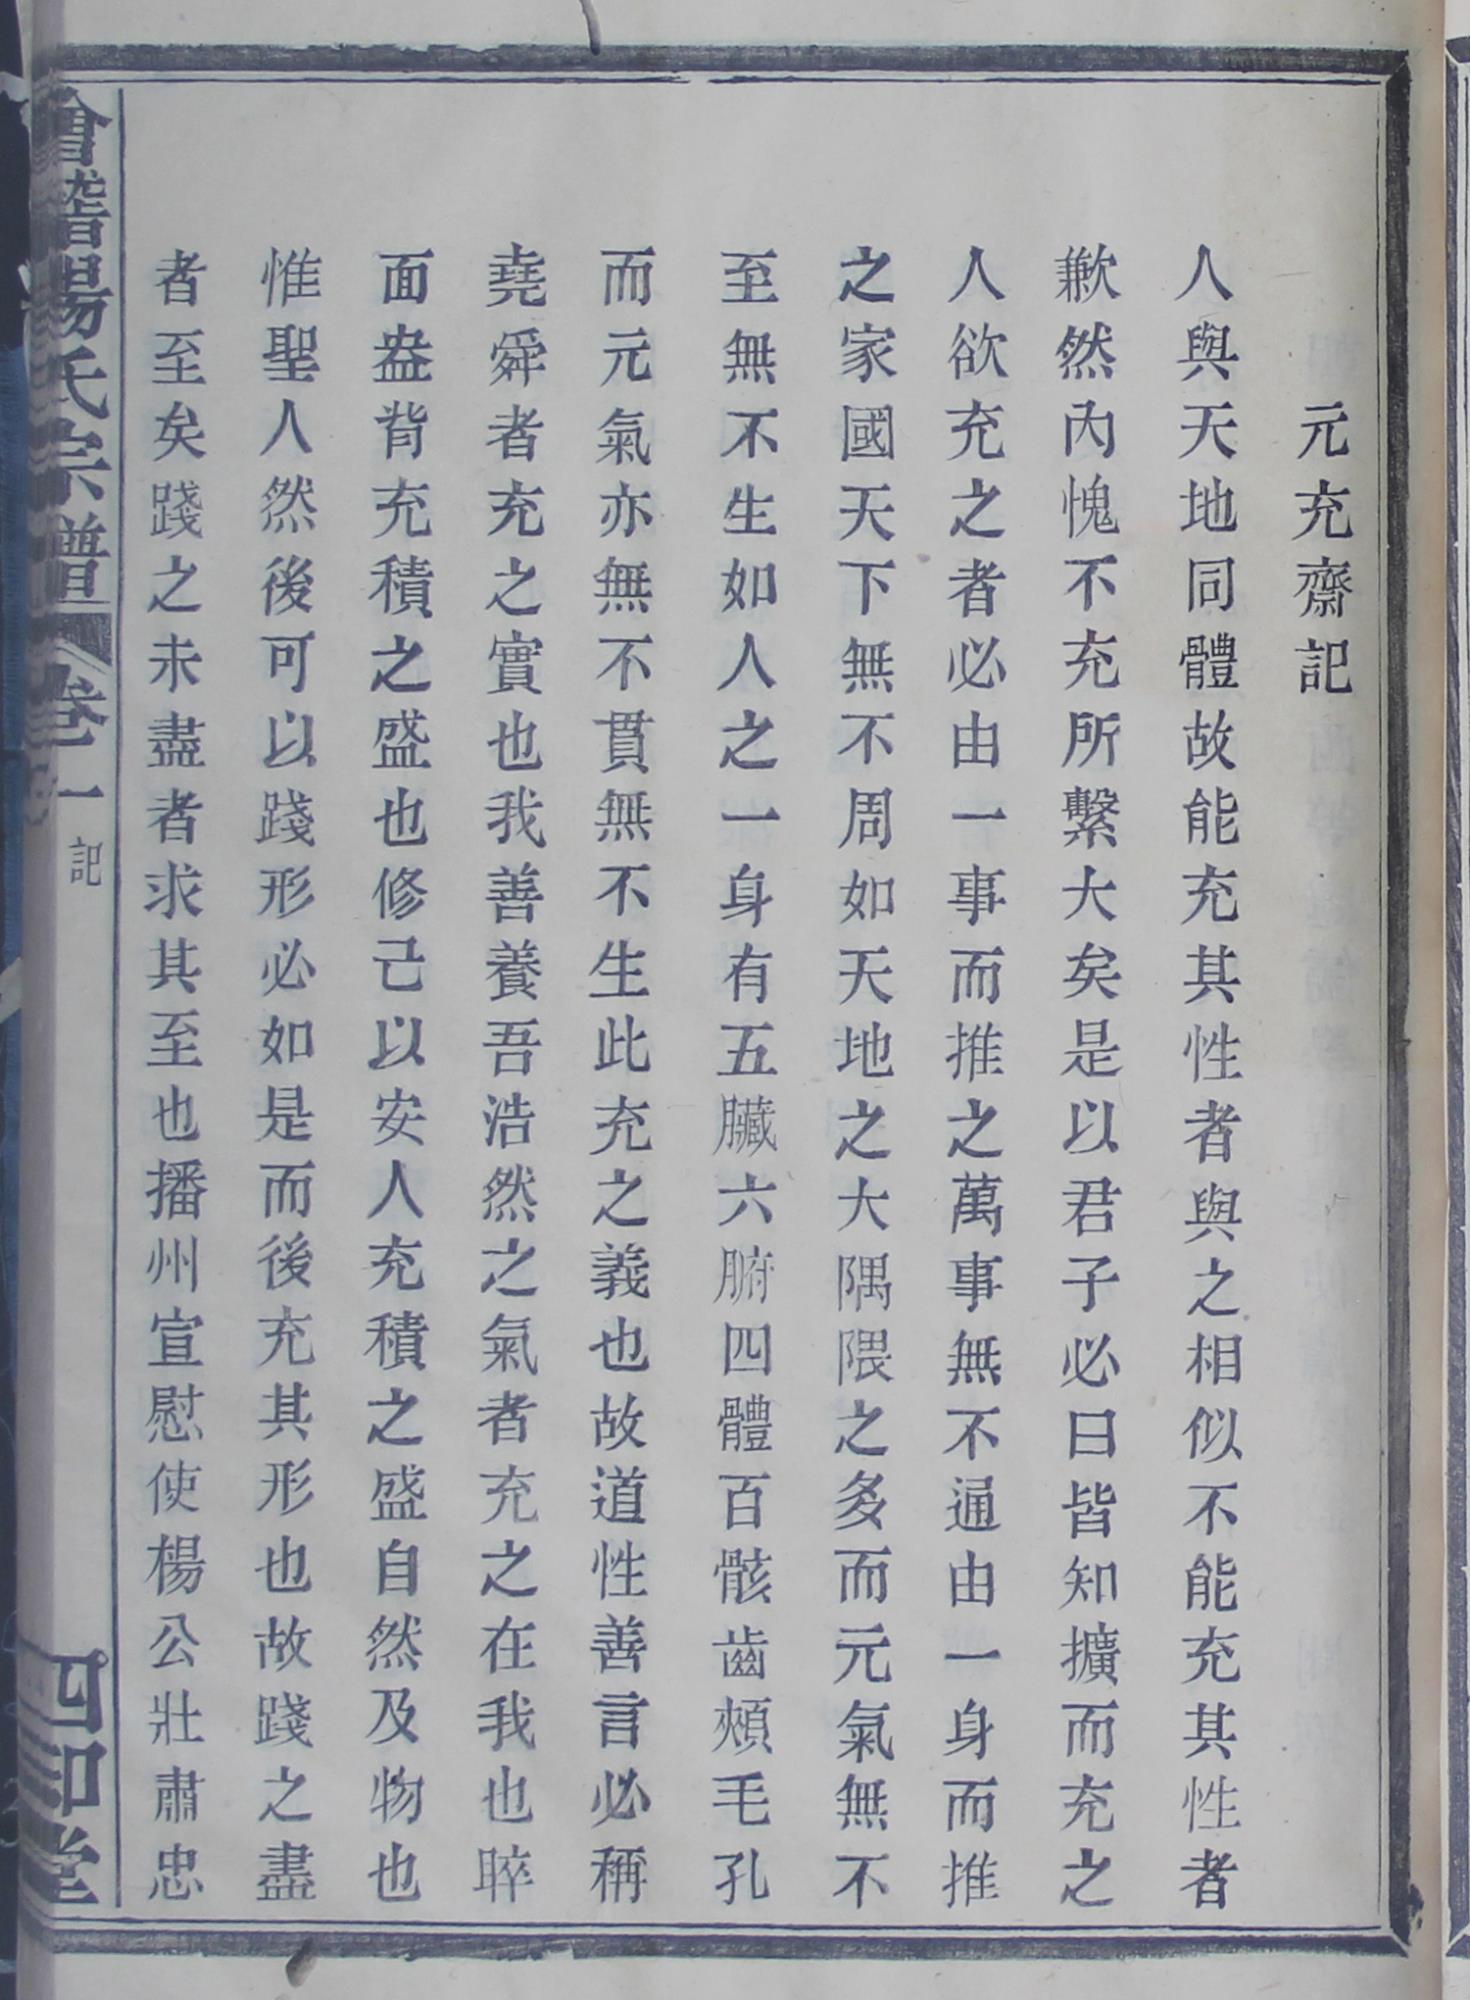 元充齋記
人與天地同體故能充其性者與之相似不能充其性者
歉然內愧不充所繫大矣是以君子必曰皆知擴而充之
人欲充之者必由一事而推之萬事無不通由一身而推
之家國天下無不周如天地之大隅隈之多而元氣無不
至無不生如人之一身有五臟六腑四體百骸齒頰毛孔
而元氣亦無不貫無不生此充之義也故道性善言必稱
堯舜者充之實也我善養吾浩然之氣者充之在我也睟
面盎背充積之盛也修己以安人充積之盛自然及物也
惟聖人然後可以踐形必如是而後充其形也故踐之盡
者至矣踐之未盡者求其至也播州宣慰使楊公壯肅忠
會稽楊氏宗譜 卷一 記 四知堂